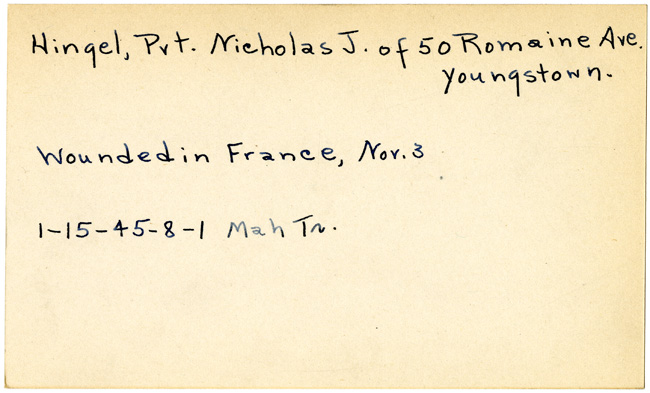 Hingel, Pvt. Nicholas J. of 50 Romaine Ave.
Youngstown.
Wounded in France, Nov. 3
1-15-45-8-1 Mah Tr.